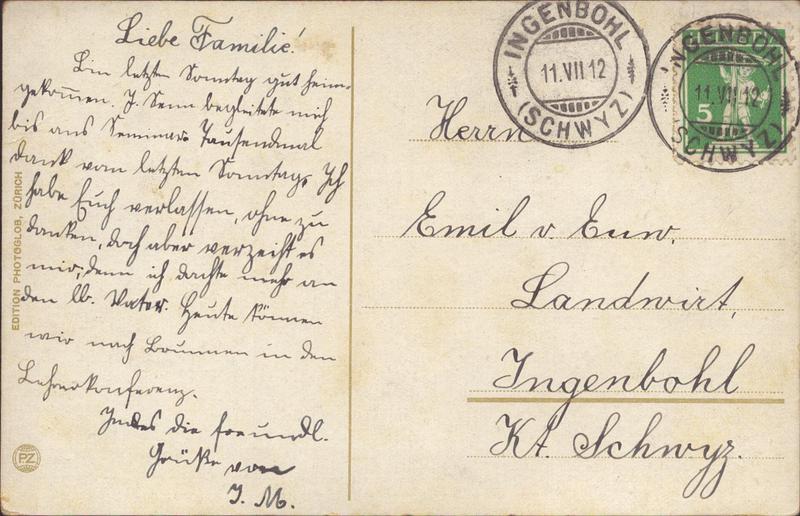 Liebe Familie!
Bin letzten Sonntag gut heim-
gekommen. J. Senn begleitete mich
bis ans Seminar. Tausendmal
dank vom letzten Sonntag. Ich
habe Euch verlassen, ohne zu
danken, doch aber verzeiht es
mir, denn ich dachte mehr an
den lb. Vater. Heute können
wir nach Brunnen in den
Lehrerkonferenz.
Indes die freundl.
Grüße von
J. M.
EDITION PHOTOGLOB, ZÜRICH
PZ
INGENBOHL
11.VII.12
(SCHWYZ)
INGENBOHL
11.VII.12
(SCHWYZ)
5
Herrn
Emil v. Euw.
Landwirt,
Ingenbohl
Kt. Schwyz.